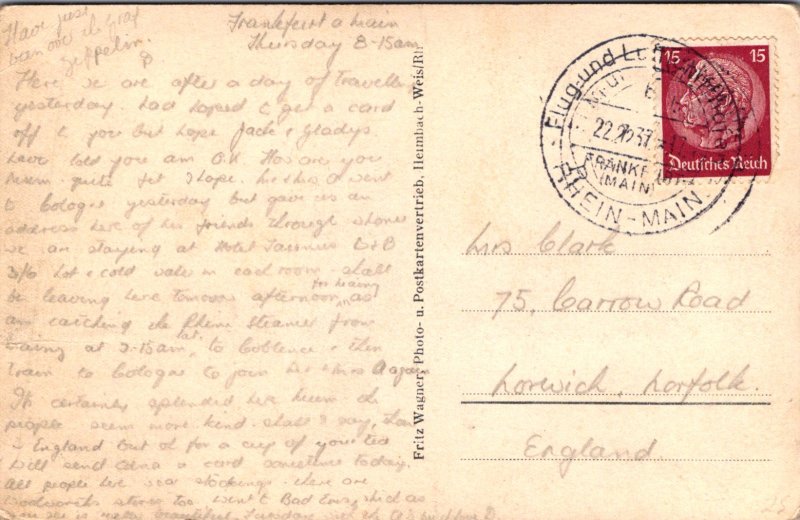 Have just
been over the Graf
Zeppelin.
Frankfurt a Main
Thursday 8-15am
Here we are after a day of travelling
yesterday. Had hoped to get a card
off to you but hope Jack & Gladys
have told you am O.K. How are you
quite fit I hope. went
to Cologne yesterday but gave us an
address here of his friends through whom
we are staying at Hotel Taunus B&B
3/6 hot & cold water in each room. shall
be leaving here tomorrow afternoon as
am catching the Rhine Steamer from
at 9-15am, to Coblence & then
train to Cologne to join Mr & Mrs A again
It's certainly splendid here the
people seem more kind shall I say, than
in England but oh for a cup of your tea
Will send Edna a card sometime today.
All people here wear stockings. there are
Woolworths stores too. went to Bad which as
you see is very beautiful. Tuesday with the A's
Fritz Wagner, Photo- u. Postkartenvertrieb, Heimbach-Weis/Rh.
Flug- und Luft
22.37
FRANKFURT
(MAIN)
RHEIN-MAIN
15 15
Deutsches Reich
Mrs Clark
75, Carrow Road
Norwich, Norfolk.
England